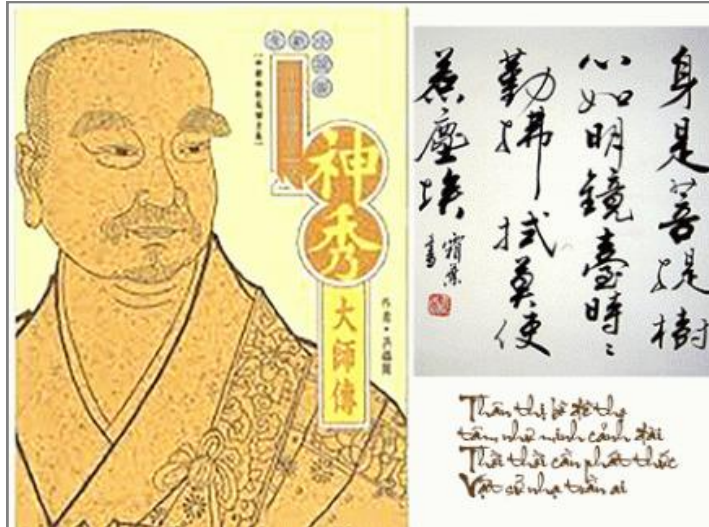 神秀
大師傳
身是菩提樹
心如明鏡臺時〻
勤拂拭莫使
惹塵埃
Thân thị bồ đề thọ
tâm như minh cảnh đài
Thời thời cần phất thức
Vật sử nhạ trần ai